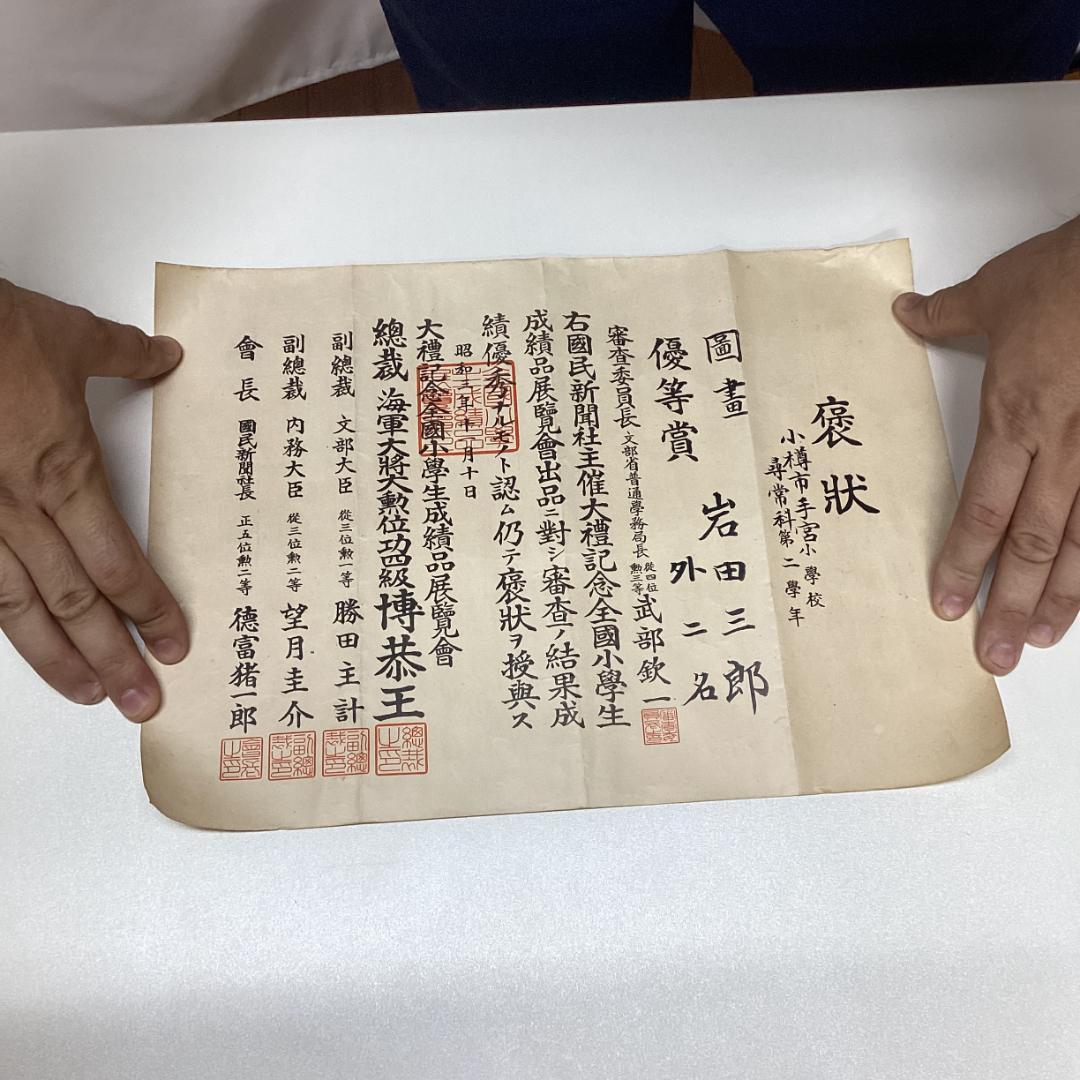 褒狀
小樽市手宮小學校
尋常科第二學年
圖畫 岩田三郎
外二名
優等賞
審査委員長 文部省普通學務局長 從四位勳三等 武部欽一
右國民新聞社主催大禮記念全國小學生
成績品展覽會出品ニ對シ審査ノ結果成
績優秀ナルモノト認ム仍テ褒狀ヲ授與ス
昭和三年十一月十日
大禮記念全國小學生成績品展覽會
總裁 海軍大將大勳位功四級博恭王
總裁之印
副總裁 文部大臣 從三位勳一等 勝田主計
副總裁之印
副總裁 內務大臣 從三位勳二等 望月圭介
副總裁之印
會長 國民新聞社長 正五位勳二等 德富猪一郎
會長之印